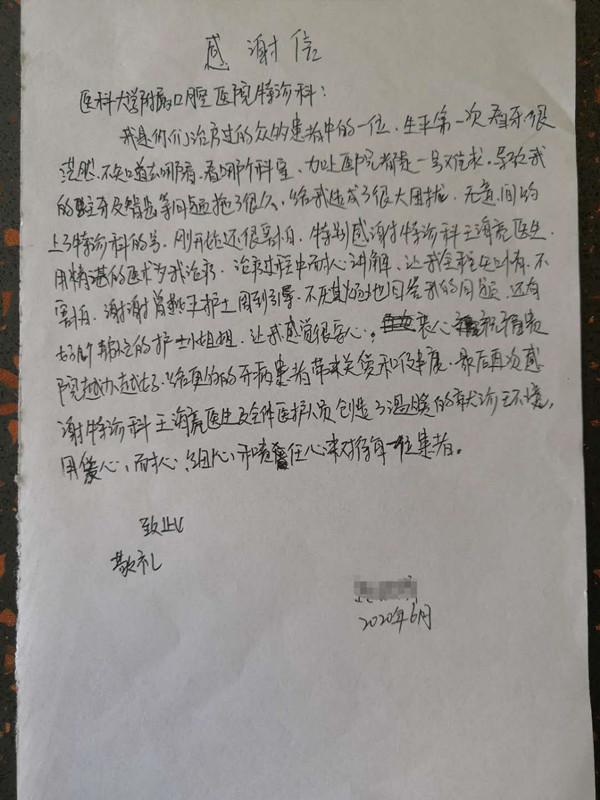 感谢信
医科大学附属口腔医院特诊科：
我是你们治疗过的众多患者中的一位，生平第一次看牙很
茫然，不知道去哪看，看哪个科室，加上医院都是一号难求，导致我
的蛀牙及智齿等问题拖了很久，给我造成了很大困扰，无意间约
上了特诊科的号，刚开始还很害怕，特别感谢特诊科王海亮医生
用精湛的医术为我治疗，治疗过程中耐心讲解，让我全程 不
害怕，谢谢肖 护士周到引导，不厌其烦地回答我的问题，还有
好几个 的护士小姐姐，让我感觉很安心，衷心祝福贵
院越办越好，给更多的牙病患者带来关货和健康，最后再次感
谢特诊科王海亮医生及全体医护人员创造了温暖的就诊环境，
用爱心，耐心，细心，和责任心来对待每一位患者。
致此
敬礼
2020年6月